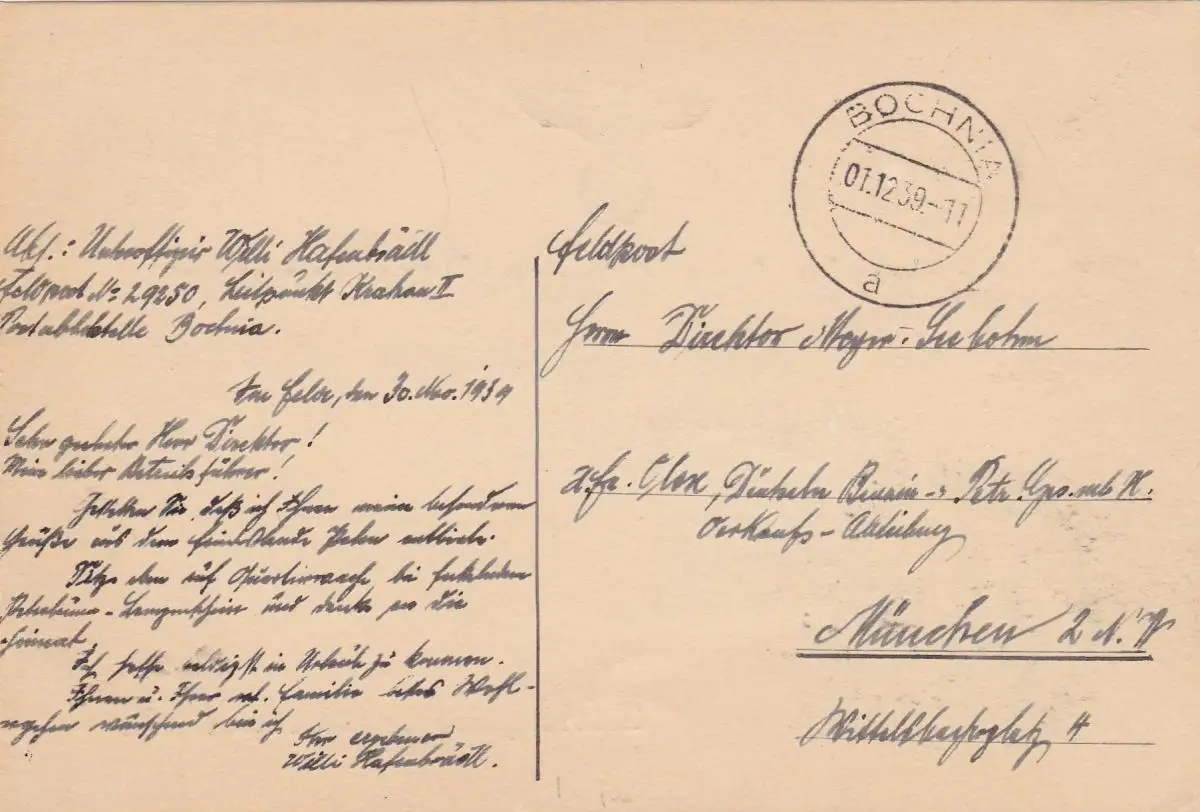 Abs.: Unteroffizier Willi Hafenbrädl
Feldpost No 29250, Leitpunkt Krakau II
Postabholstelle Bochnia.
Im Felde, den 30. Nov. 1939
Sehr geehrter Herr Direktor!
Mein lieber Betriebsführer!
Gestatten Sie, daß ich Ihnen meine besonderen
Grüße aus dem Feindeslande Polen entbiete.
Sitze eben auf Quartierwache bei
Petroleum-Lampenschein und denke an die
Heimat.
Ich hoffe baldigst in Urlaub zu kommen.
Ihnen u. Ihrer Familie bestes Wohl-
ergehen wünschend bin ich
Ihr ergebener
Willi Hafenbrädl.
BOCHNIA
01.12.39.-11
a
Feldpost
Herrn Direktor Meyer-Seebohm
Fa. Olex, Deutsche Benzin- u. Petr. Ges. mb H.
Verkaufs-Abteilung
München 2 N.W
Wittelsbacherplatz 4